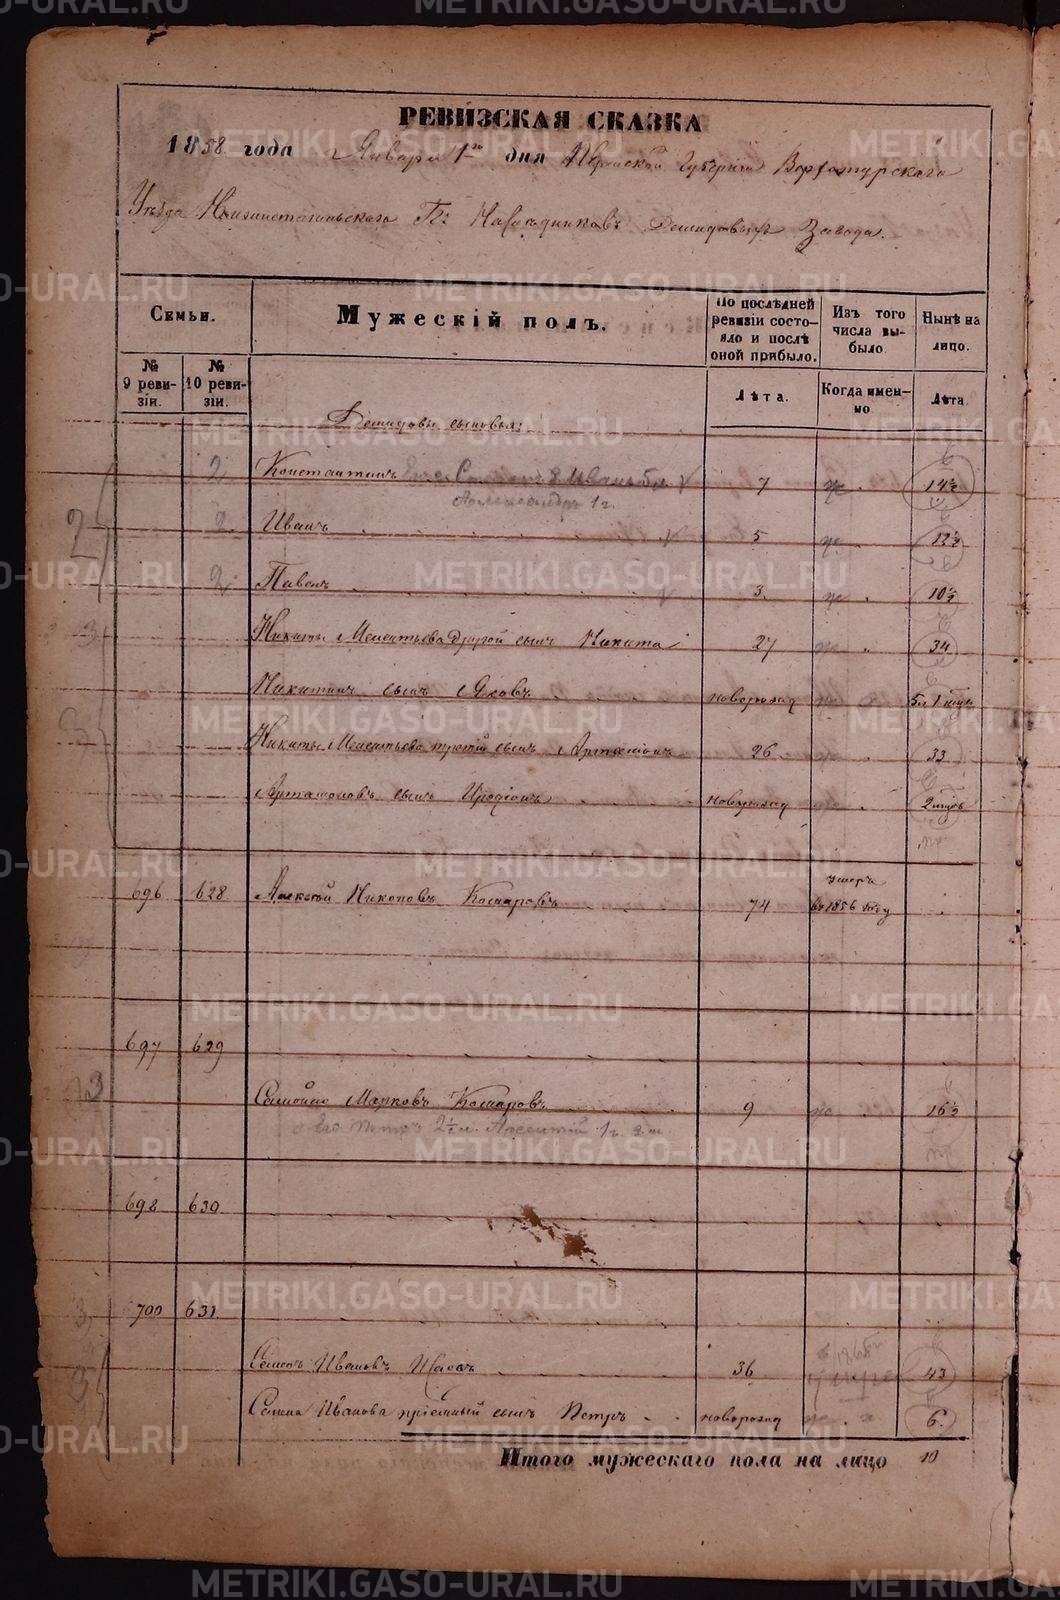 РЕВИЗСКАЯ СКАЗКА
1858 года Января 1го дня Пермской Губернiи Верхотурскаго
Уѣзда Нижнетагильскаго Гг. Наслѣдниковъ Демидовыхъ Завода.
Семьи.
Мужескiй полъ.
По послѣдней ревизiи состояло и послѣ оной прибыло.
Изъ того числа выбыло
Нынѣ на лицо.
№ 9 ревизiи.
№ 10 ревизiи.
Лѣта.
Когда именно
Лѣта.
Демидовы сыновья:
2 Константинъ 7 14½
Александръ 1 г.
2 Иванъ 5 12½
2 Павелъ 3. 10½
Никиты Мелентьева другой сынъ Никита 27 34
Никитинъ сынъ Яковъ новорожд 5л 1 мѣц
Никиты Мелентьева третiй сынъ Артамонъ 26 33
Артамоновъ сынъ Иродiонъ новорожд 2 мѣц
696 628 Алексѣй Никоновъ Комаровъ 74 умеръ въ 1856 году
697 629
Самойло Марковъ Комаровъ 9 16½
Его Петръ 2½
698 630
700 631
Семенъ Ивановъ 36 43
Семена Иванова прiемный сынъ Петръ новорожд 6.
Итого мужескаго пола на лицо 10
METRIKI.GASO-URAL.RU